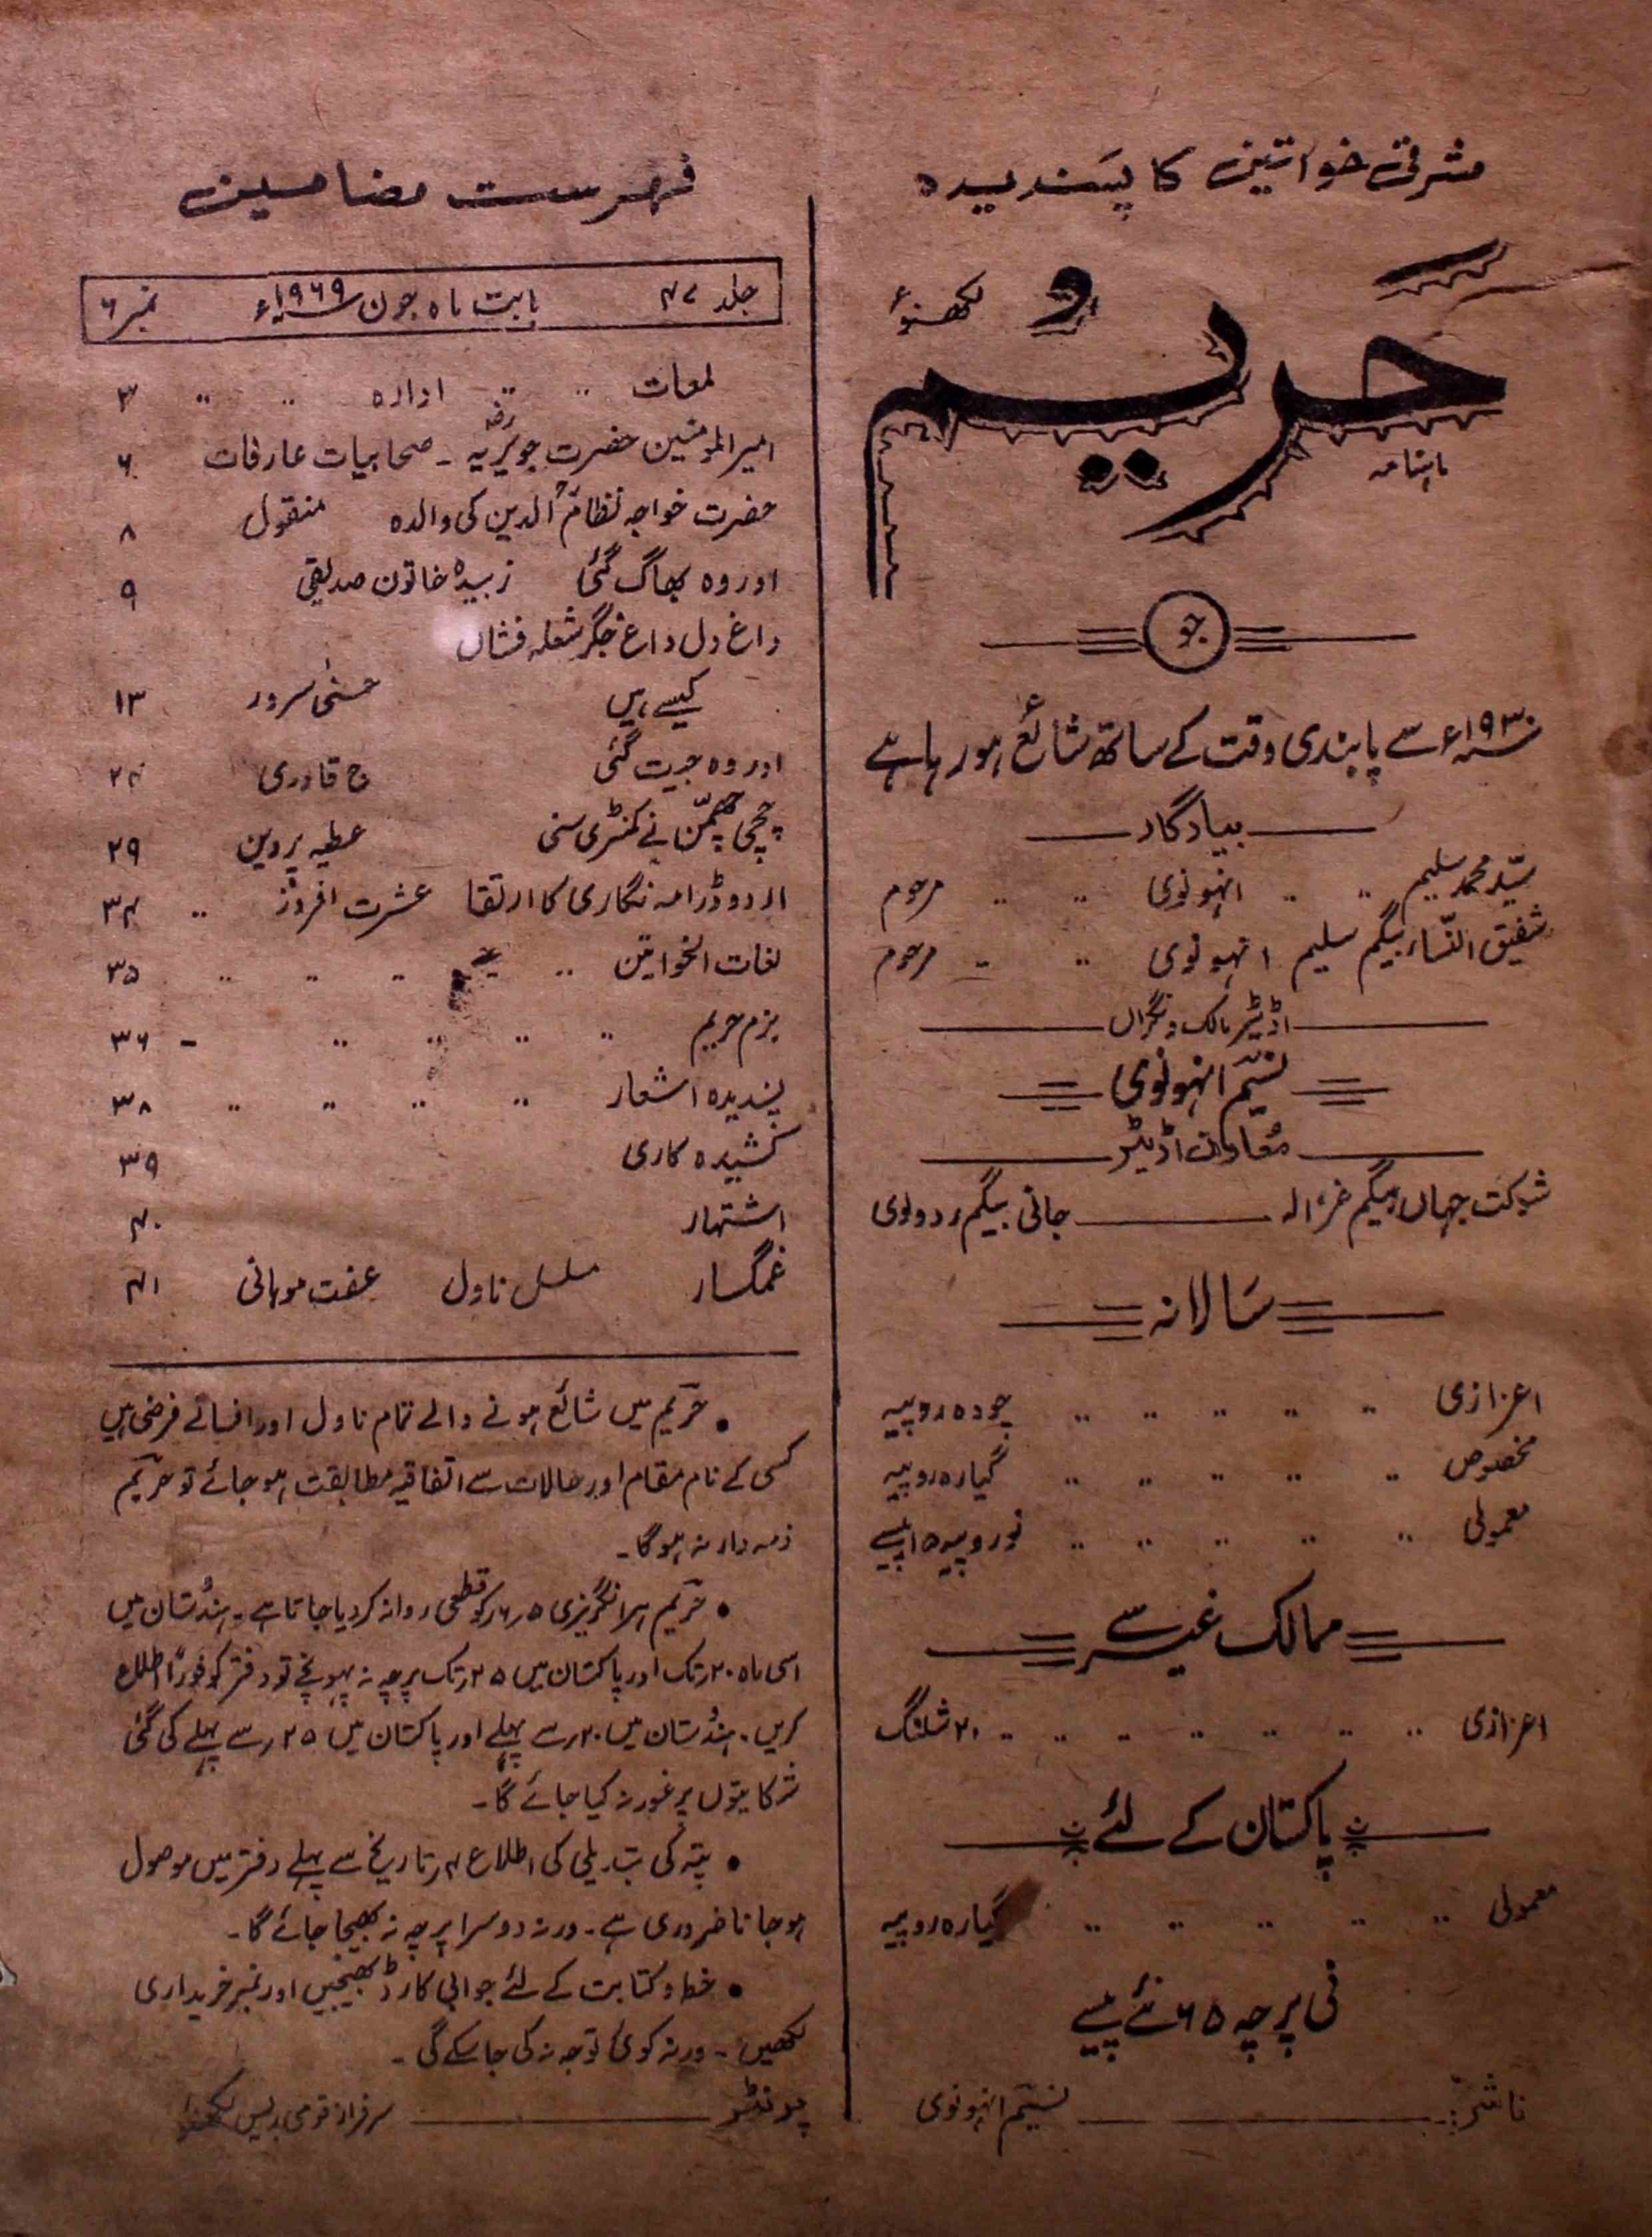 مشرقی خواتین کا پسندیدہ
حریم
لکھنؤ
ماہنامہ
جو
۱۹۳۰ء سے پابندی وقت کے ساتھ شائع ہو رہا ہے
بیادگار
سید محمد سلیم انہونوی مرحوم
شفیق النساء بیگم سلیم انہونوی مرحوم
اڈیٹر مالک و نگراں
نسیم انہونوی
معاون اڈیٹر
شوکت جہاں بیگم غزالہ جانی بیگم ردولوی
سالانہ
اعزازی چودہ روپیہ
مخصوص گیارہ روپیہ
معمولی نو روپیہ ۵۰ پیسے
ممالک غیر سے
اعزازی ۲۰ شلنگ
پاکستان کے لئے
معمولی گیارہ روپیہ
فی پرچہ ۶۵ نئے پیسے
ناشر: نسیم انہونوی
فہرست مضامین
جلد ۴۷ بابت ماہ جون ۱۹۶۹ء نمبر ۶
لمعات ادارہ ۳
امیر المومنین حضرت جویریہ رضہ ۔ صحابیات عارفات ۶
حضرت خواجہ نظام الدینؒ کی والدہ منقول ۸
اور وہ بھاگ گئی زبیدہ خاتون صدیقی ۹
داغ دل داغ جگر شعلہ فشاں
کیسے ہیں حسنیٰ سرور ۱۳
اور وہ جیت گئی ح قادری ۲۴
چچی چھمّن نے کمنٹری سنی عطیہ پروین ۲۹
اردو ڈرامہ نگاری کا ارتقا عشرت افروز ۳۴
لغات الخواتین ۳۵
بزم حریم ۳۶
پسندیدہ اشعار ۳۸
کشیدہ کاری ۳۹
اشتہار ۴۰
غمگسار مسلسل ناول عفت موہانی ۴۱
• حریم میں شائع ہونے والے تمام ناول اور افسانے فرضی ہیں
کسی کے نام مقام اور حالات سے اتفاقیہ مطابقت ہو جائے تو حریم
ذمہ دار نہ ہوگا۔
• حریم ہر انگریزی ۵، ۶ کو قطعی روانہ کر دیا جاتا ہے۔ ہندُستان میں
اسی ماہ ۲۰ تک اور پاکستان میں ۲۵ تک پرچہ نہ پہونچے تو دفتر کو فوراً اطلاع
کریں۔ ہندُستان میں ۲۰ سے پہلے اور پاکستان میں ۲۵ سے پہلے کی گئی
شکایتوں پر غور نہ کیا جائے گا۔
• پتہ کی تبدیلی کی اطلاع ۴ تاریخ سے پہلے دفتر میں موصول
ہو جانا ضروری ہے۔ ورنہ دوسرا پرچہ نہ بھیجا جائے گا۔
• خط و کتابت کے لئے جوابی کارڈ بھیجیں اور نمبر خریداری
لکھیں۔ ورنہ کوئی توجہ نہ کی جا سکے گی۔
پرنٹر سرفراز قومی پریس لکھنؤ